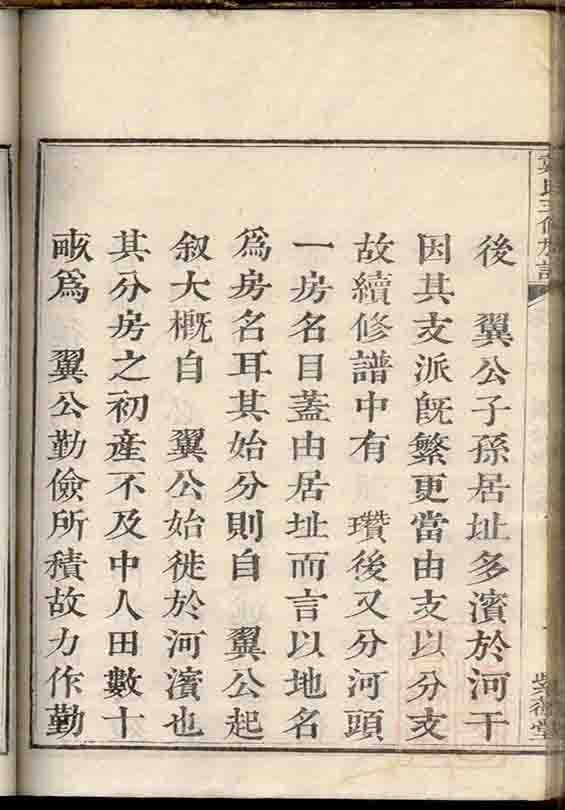 後　翼公子孫居址多濱於河干
因其支派旣繁更當由支以分支
故續修譜中有　瓚後又分河頭
一房名目蓋由居址而言以地名
爲房名耳其始分則自　翼公起
叙大槪自　翼公始徙於河濱也
其分房之初產不及中人田數十
畞爲　翼公勤儉所積故力作勤